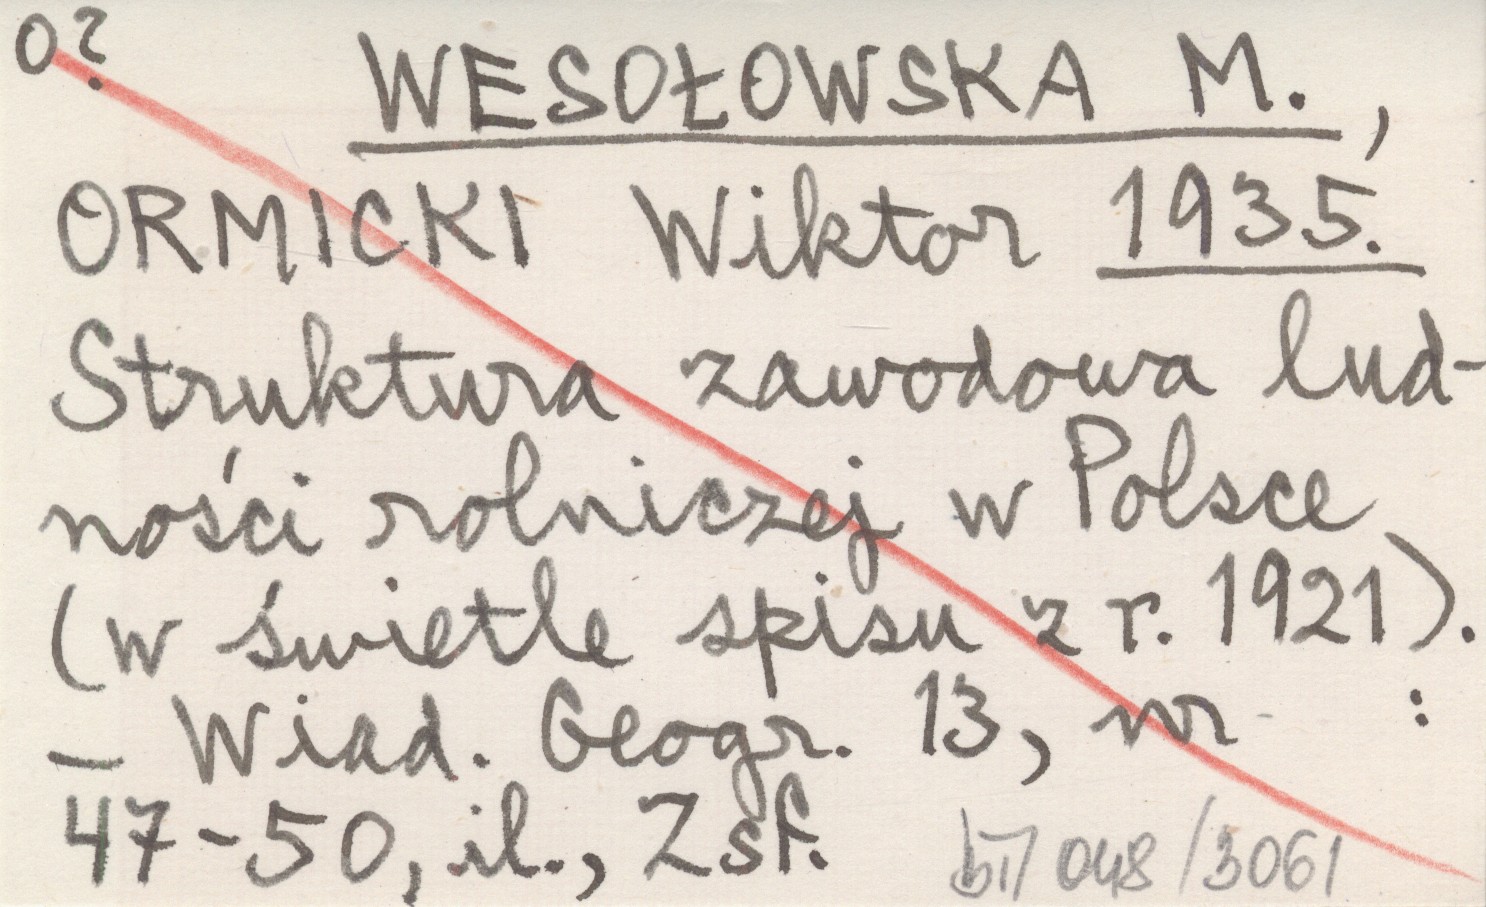 o?
WESOŁOWSKA M.,
ORMICKI Wiktor 1935.
Struktura zawodowa lud-
ności rolniczej w Polsce
(w świetle spisu z r. 1921).
— Wiad. Geogr. 13, nr :
47-50, il., Zsf.
048/3061